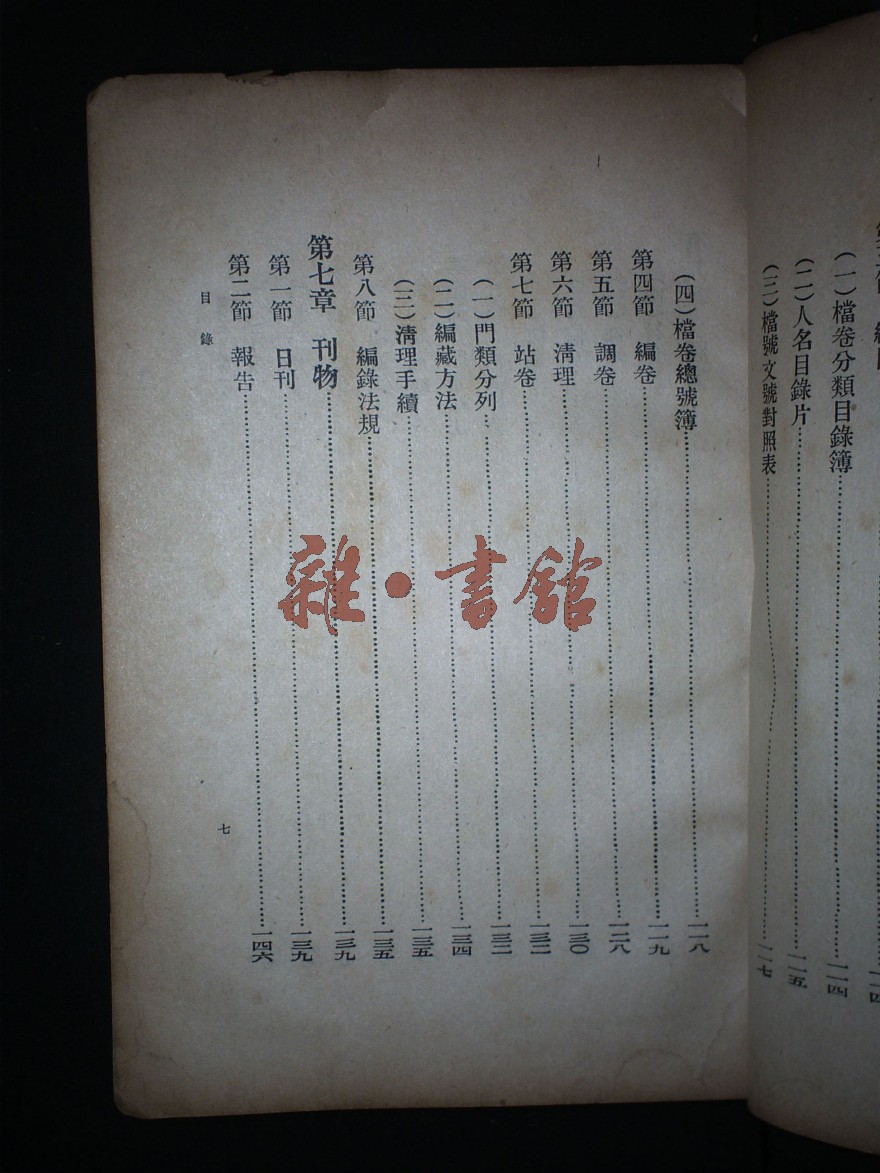 (一)檔卷分類目錄簿……一一四
(二)人名目錄片……一一五
(三)檔號文號對照表……一一七
(四)檔卷總號簿……一一八
第四節　編卷……一一九
第五節　調卷……一二八
第六節　清理……一三〇
第七節　站卷……一三二
(一)門類分列……一三二
(二)編藏方法……一三四
(三)清理手續……一三五
第八節　編錄法規……一三五
第七章　刊物……一三九
第一節　日刊……一三九
第二節　報告……一四六
目錄
七
雜·書館